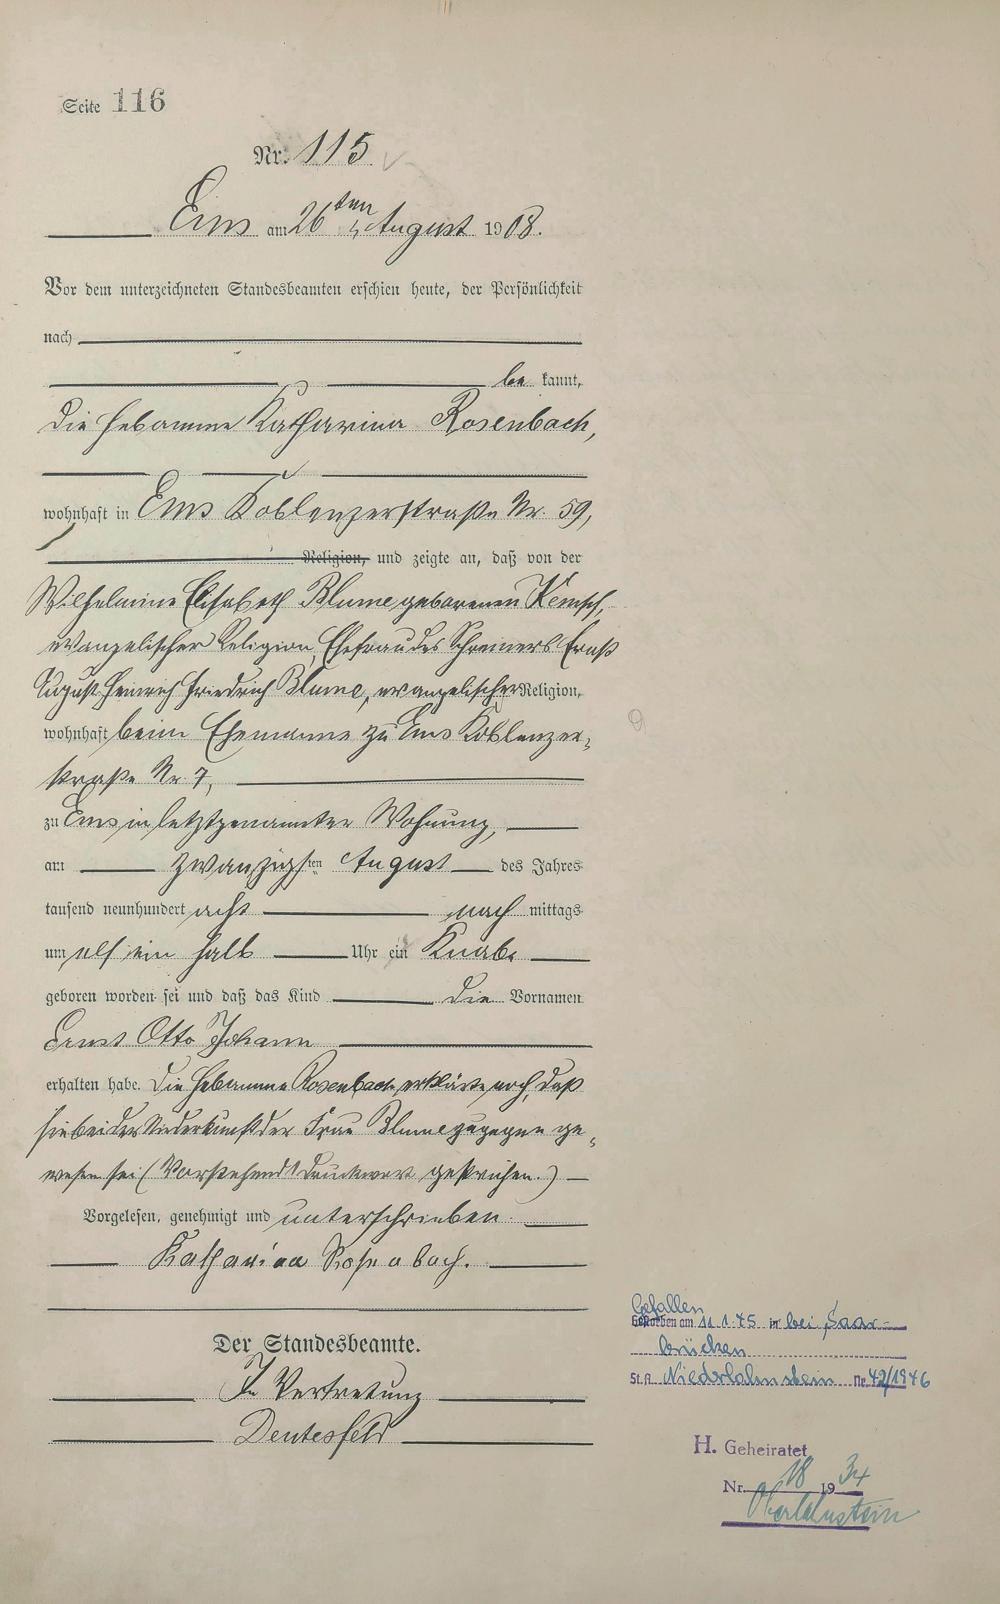 Seite 116
Nr. 115
Ems am 26ten August 1908.
Vor dem unterzeichneten Standesbeamten erschien heute, der Persönlichkeit
nach
be kannt,
die Hebamme Katharina Rosenbach,
wohnhaft in Ems Koblenzerstraße Nr. 59,
Religion, und zeigte an, daß von der
Wilhelmine Elisabeth Blume geborenen Kemsch,
evangelischer Religion, Ehefrau des Schreiners Ernst
August Heinrich Friedrich Blume, evangelischer Religion,
wohnhaft beim Ehemanne zu Ems Koblenzer-
straße Nr. 7,
zu Ems in letztgenannter Wohnung,
am zwanzigsten August des Jahres
tausend neunhundert acht nach mittags
um elf ein halb Uhr ein Knabe
geboren worden sei und daß das Kind die Vornamen
Ernst Otto Johann
erhalten habe. Die Hebamme Rosenbach erklärte noch, daß
sie bei der Niederkunft der Frau Blume zugegen ge-
wesen sei (Vorstehend 1 Druckwort gestrichen.)
Vorgelesen, genehmigt und unterschrieben
Katharina Rosenbach.
Der Standesbeamte.
In Vertretung
Deutesfeld
Gefallen
Gestorben am 11.1.45 in bei Saar-
brücken
St.A. Niederlahnstein Nr. 42/1946
H. Geheiratet
Nr. 18 1934
Oberlahnstein